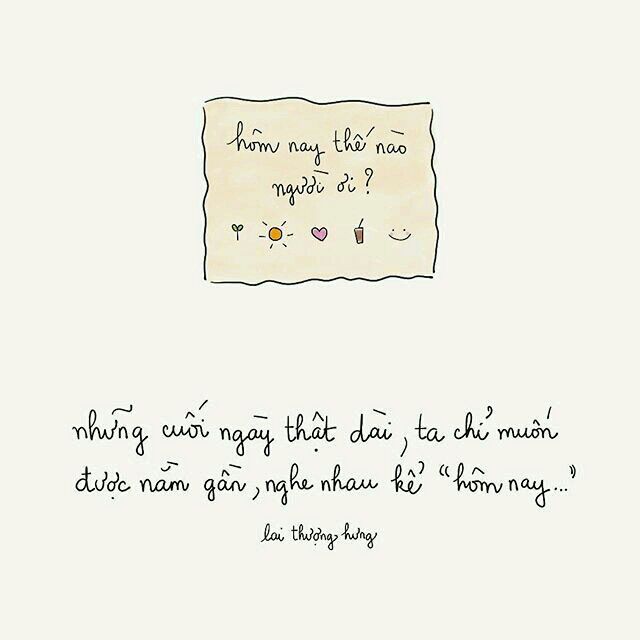 hôm nay thế nào
người ơi?
những cuối ngày thật dài, ta chỉ muốn
được nằm gần, nghe nhau kể "hôm nay..."
lai thượng hưng